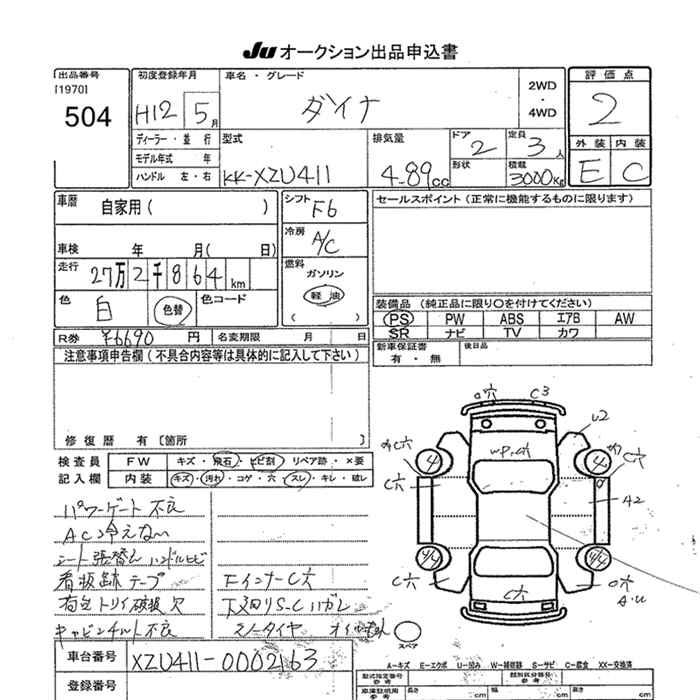 JU オークション出品申込書
出品番号
[1970]
504
初度登録年月
H12 5月
車名・グレード
ダイナ
2WD
・
4WD
評価点
2
外装 内装
E C
ディーラー・並行
モデル年式 年
ハンドル 左・右
型式
KK-XZU411
排気量
4.89cc
ドア 2
形状
定員 3人
積載
3000Kg
車歴 自家用( )
車検 年 月( 日)
走行 27万2千864km
色 白 色替 色コード
シフト F6
冷房 A/C
燃料
ガソリン
軽油
( )
セールスポイント(正常に機能するものに限ります)
装備品(純正品に限り○を付けてください)
PS PW ABS エアB AW
SR ナビ TV カワ
新車保証書
有・無
後日品
R券 ¥6690円 名変期限 月 日
注意事項申告欄(不具合内容等は具体的に記入して下さい)
修復歴 有〔箇所 〕
検査員
記入欄
FW キズ・飛石・ヒビ割 リペア跡・×要
内装 キズ・汚れ・コゲ・穴・スレ・キレ・破レ
パワーゲート不良
AC冷えない
シート張替え ハンドルヒビ
看板跡テープ
キャビンチルト不良
FインナーC穴
下廻りS-C ハガレ
スノータイヤ
スペア
C3
U2
A2
C穴
C穴
C穴
C穴
4 4
4/4 4/4
A・U
車台番号 XZU411-0002163
登録番号
A-キズ E-エクボ U-凹み W-補修跡 S-サビ C-腐食 XX-交換済
型式指定番号
参考
類別区分番号
参考
車庫証明用
参考
長さ cm 幅 cm 高さ cm